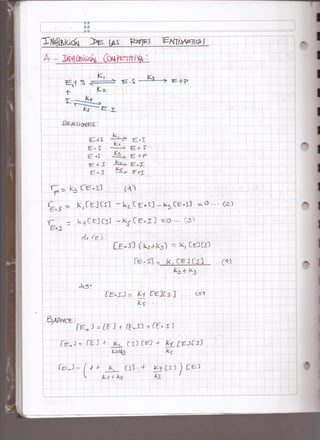 INHIBICIÓN DE LAS RXNES ENZIMATICAS
A.- INHIBICIÓN COMPETITIVA:
E + S K1 K2 E·S K3 E+P
+
I K4 K5 E·I
REACCIONES:
E+S K1 E·S
E·S K2 E+S
E·S K3 E+P
E+I K4 E·I
E·I K5 E+I
rp = k3 [E·S] ... (1)
rE·S = K1[E][S] - k2[E·S] - k3[E·S] = 0 ... (2)
rE·I = k4[E][I] - k5[E·I] = 0 ... (3)
de (2):
[E·S] (k2+k3) = K1 [E][S]
[E·S] = K1 [E][S] / k2+k3 (4)
de 3:
[E·I] = K4 [E][I] / K5 ... (5)
BALANCE:
[Eo] = [E] + [E·S] + [E·I]
[Eo] = [E] + K1 [S][E] / K2+K3 + K4 [E][I] / K5
[Eo] = ( 1 + K1 [S] / K2+K3 + K4 [I] / K5 ) [E]